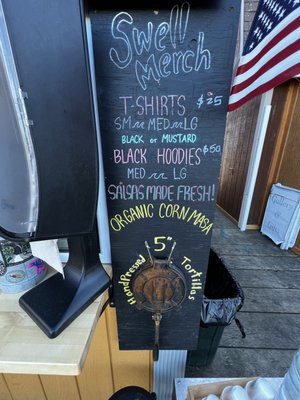 Swell
Merch
T-SHIRTS $25
SM MED LG
BLACK or MUSTARD
BLACK HOODIES $50
MED LG
SALSAS MADE FRESH!
ORGANIC CORN MASA
5"
HandPressed Tortillas